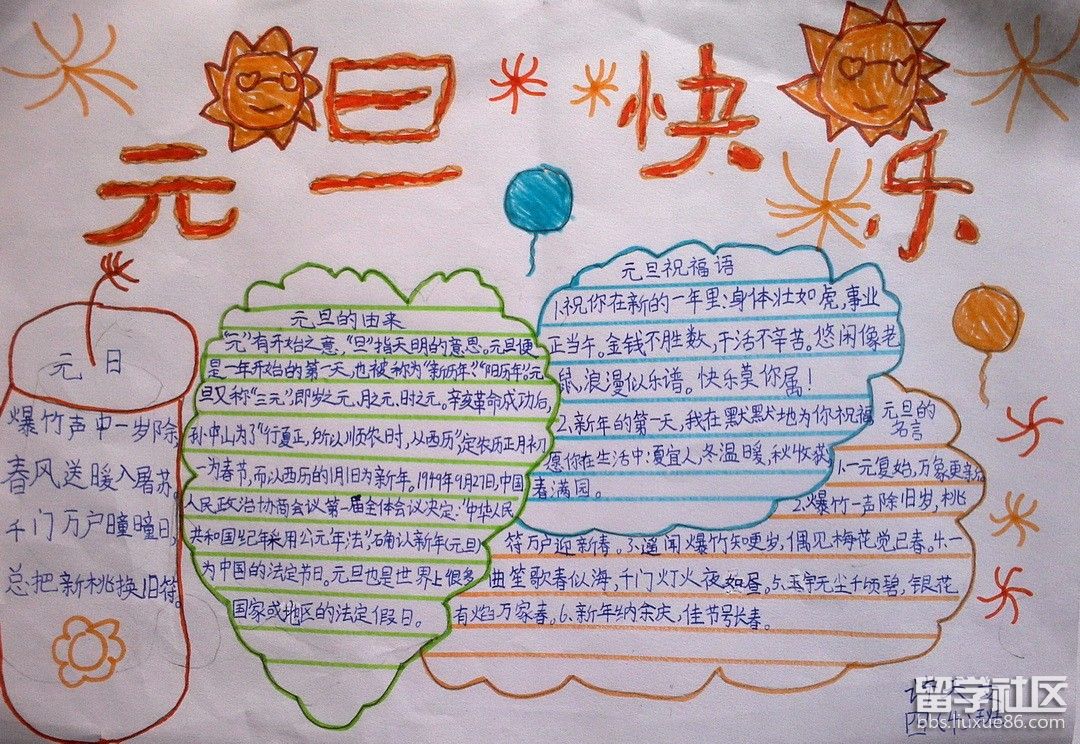 元旦快乐
元日
爆竹声中一岁除
春风送暖入屠苏。
千门万户曈曈日,
总把新桃换旧符。
元旦的由来
"元"有开始之意,"旦"指天明的意思。元旦便
是一年开始的第一天,也被称为"新历年""阳历年"。元
旦又称"三元"即岁之元、月之元、时之元。辛亥革命成功后,
孙中山为了"行夏正,所以顺农时,从西历"定农历正月初
一为春节,而以西历的1月1日为新年。1949年9月27日,中国
人民政治协商会议第一届全体会议决定:"中华人民
共和国纪年采用公元年法",确认新年(元旦)
为中国的法定节日。元旦也是世界上很多
国家或地区的法定假日。
元旦祝福语
1.祝你在新的一年里:身体壮如虎,事业
正当午。金钱不胜数,干活不辛苦。悠闲像老
鼠,浪漫似乐谱。快乐莫你属!
2、新年的第一天,我在默默地为你祝福
愿你在生活中:夏宜人,冬温暖,秋收获
春满园。
元旦的
名言
1.一元复始,万象更新
2.爆竹一声除旧岁,桃
符万户迎新春。3.遥闻爆竹知更岁,偶见梅花觉已春。4.一
曲笙歌春似海,千门灯火夜如昼。5.玉宇无尘千顷碧,银花
有焰万家春。6、新年纳余庆,佳节号长春。
留学社区
bbs.liuxue86.com